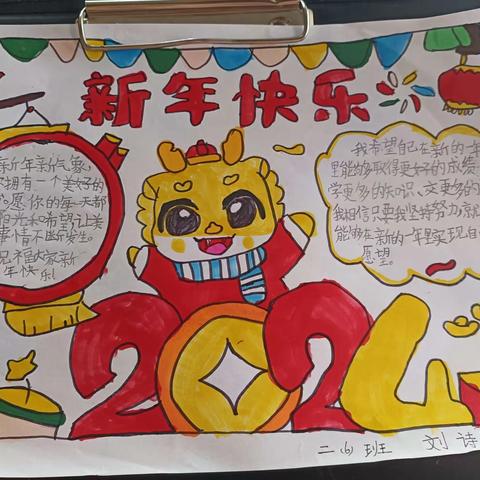 新年快乐
新年新气象,
拥有一个美好的
愿你的每一天都
阳光和希望,让美
事情不断发生。
祝福大家新
年快乐!
我希望自己在新的一年
里能够取得更好的成绩
学更多的知识、交更多的
我相信只要我坚持努力,就
能够在新的一年里实现自
愿望。
2024
二(6)班 刘诗